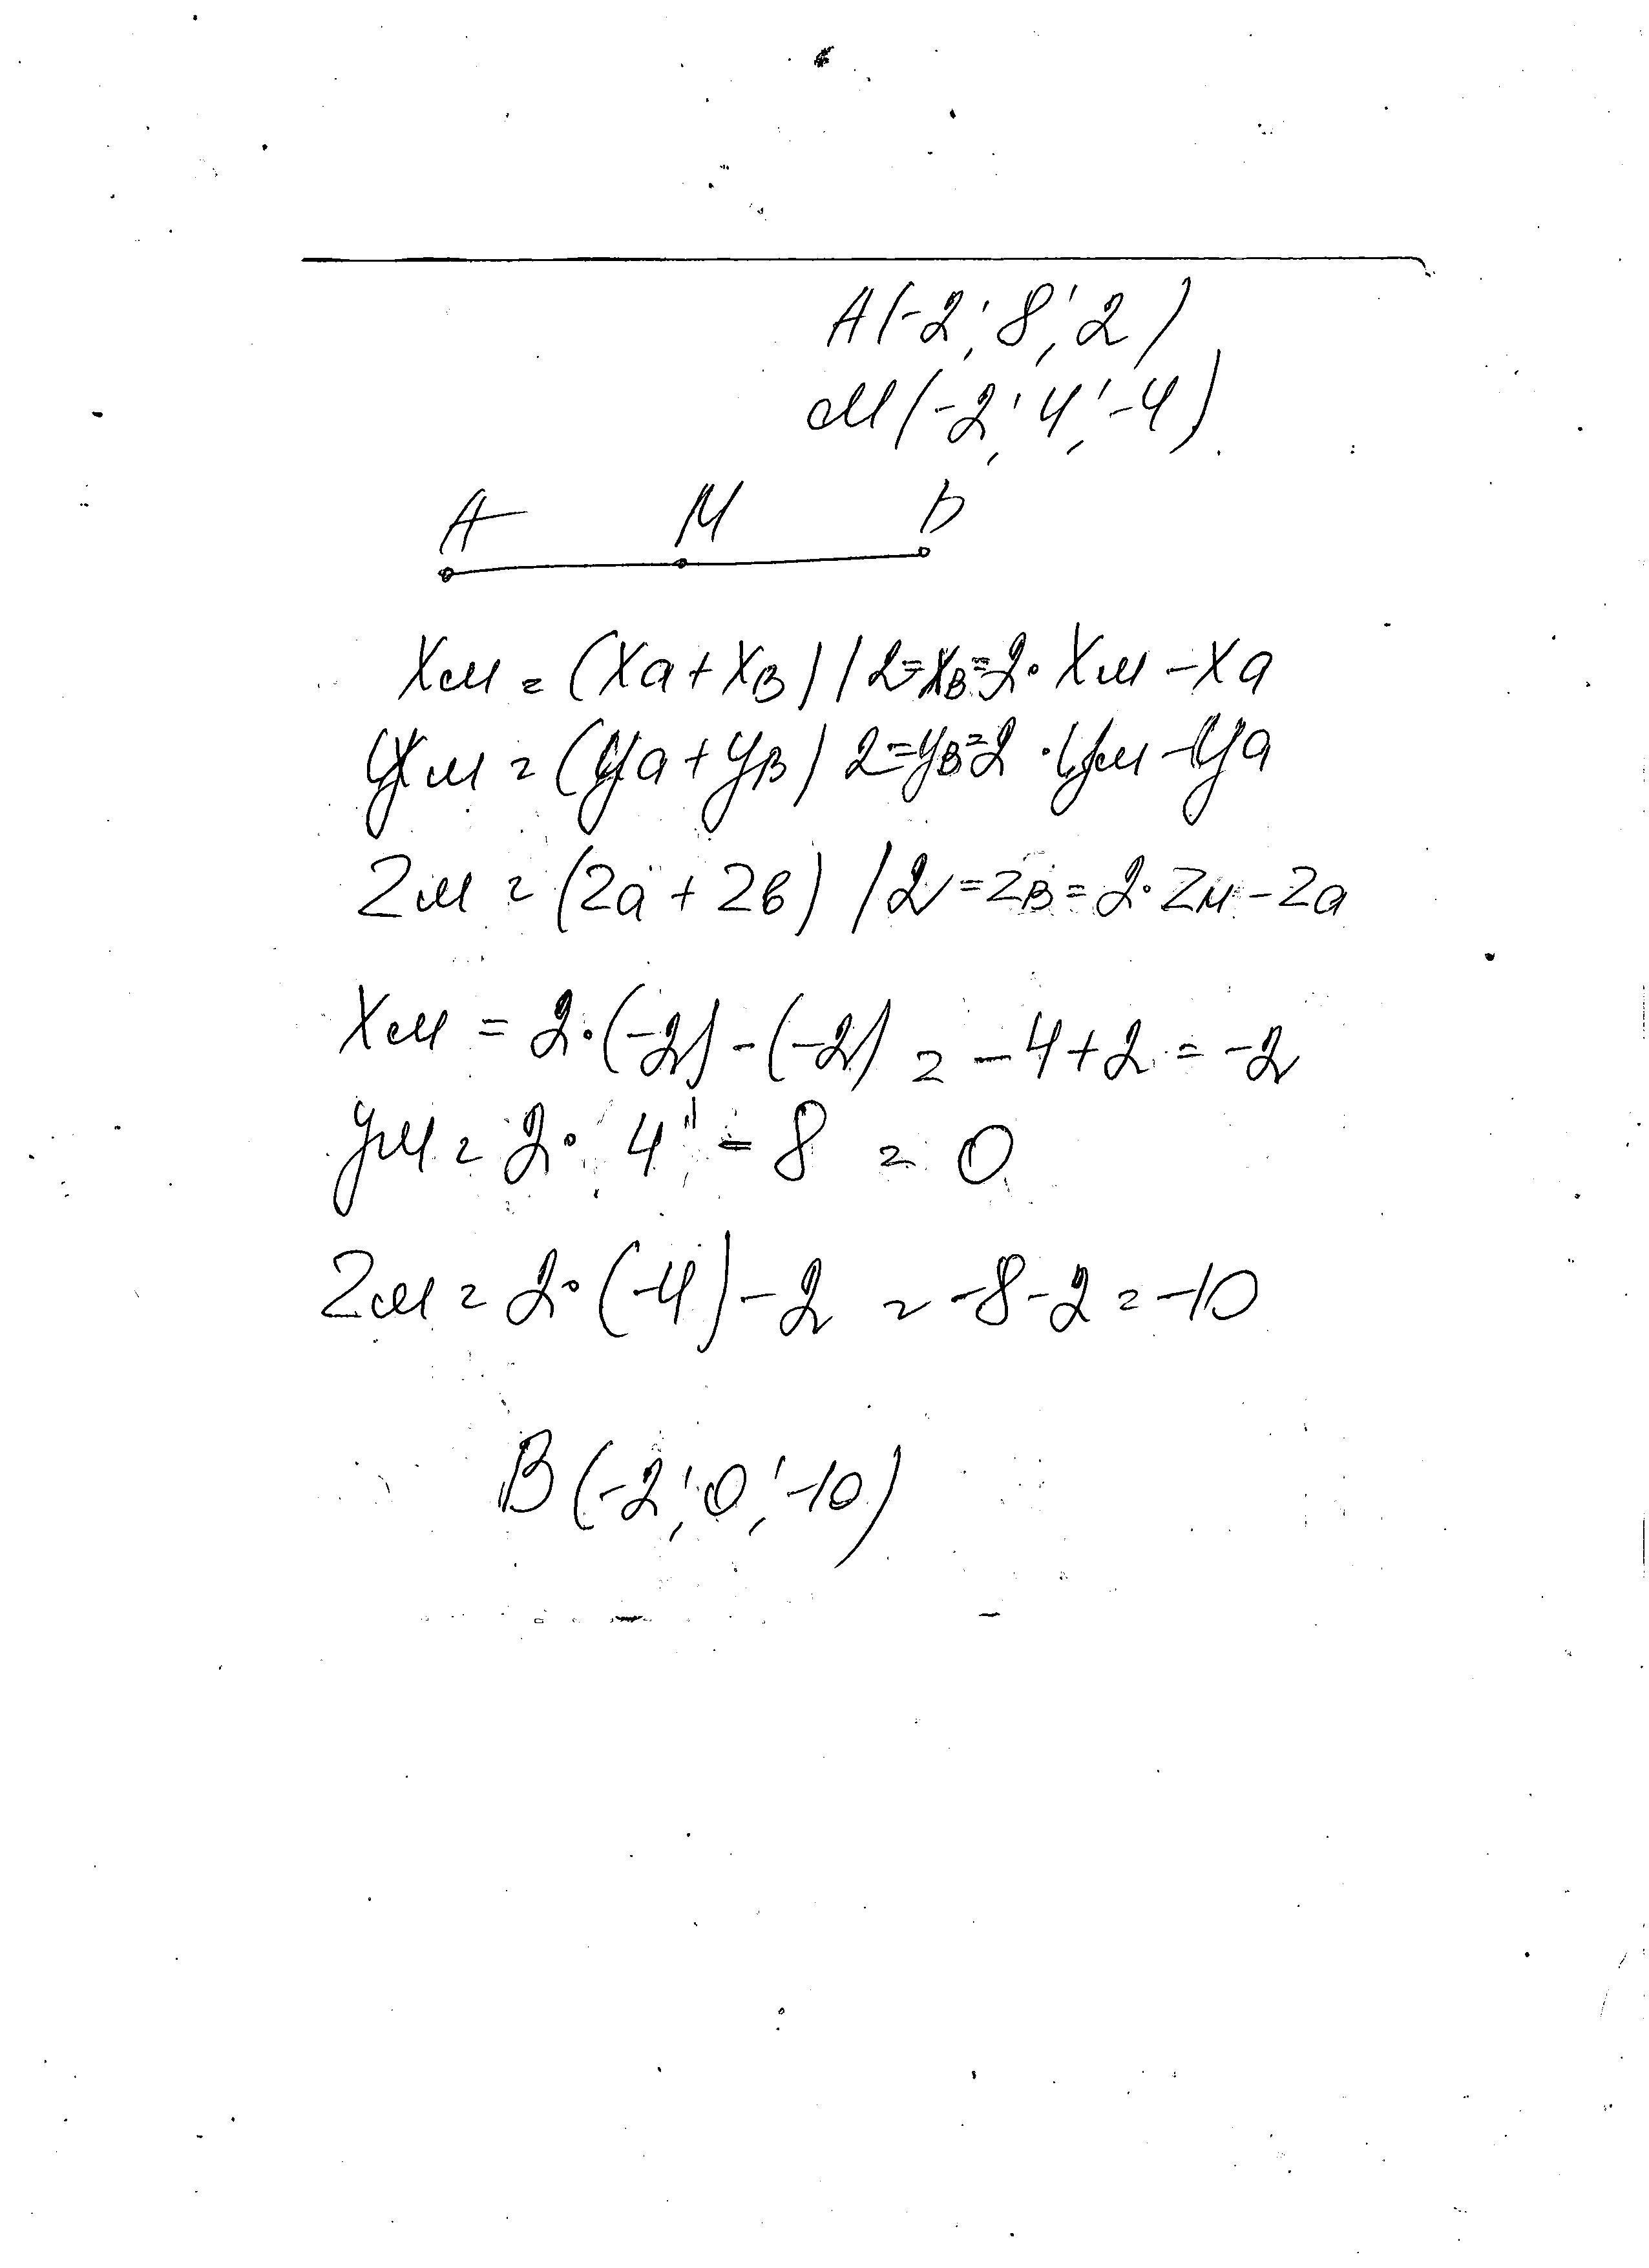 A(-2; 8; 2)
M(-2; 4; -4)
A M B
Xм = (Xa + XB) / 2 = XB = 2 · Xм - Xa
Yм = (Ya + YB) 2 = YB = 2 · Yм - Ya
Zм = (Za + Zв) / 2 = ZB = 2 · Zм - Za
Xм = 2 · (-2) - (-2) = -4 + 2 = -2
Yм = 2 · 4 - 8 = 0
Zм = 2 · (-4) - 2 = -8 - 2 = -10
B(-2; 0; -10)